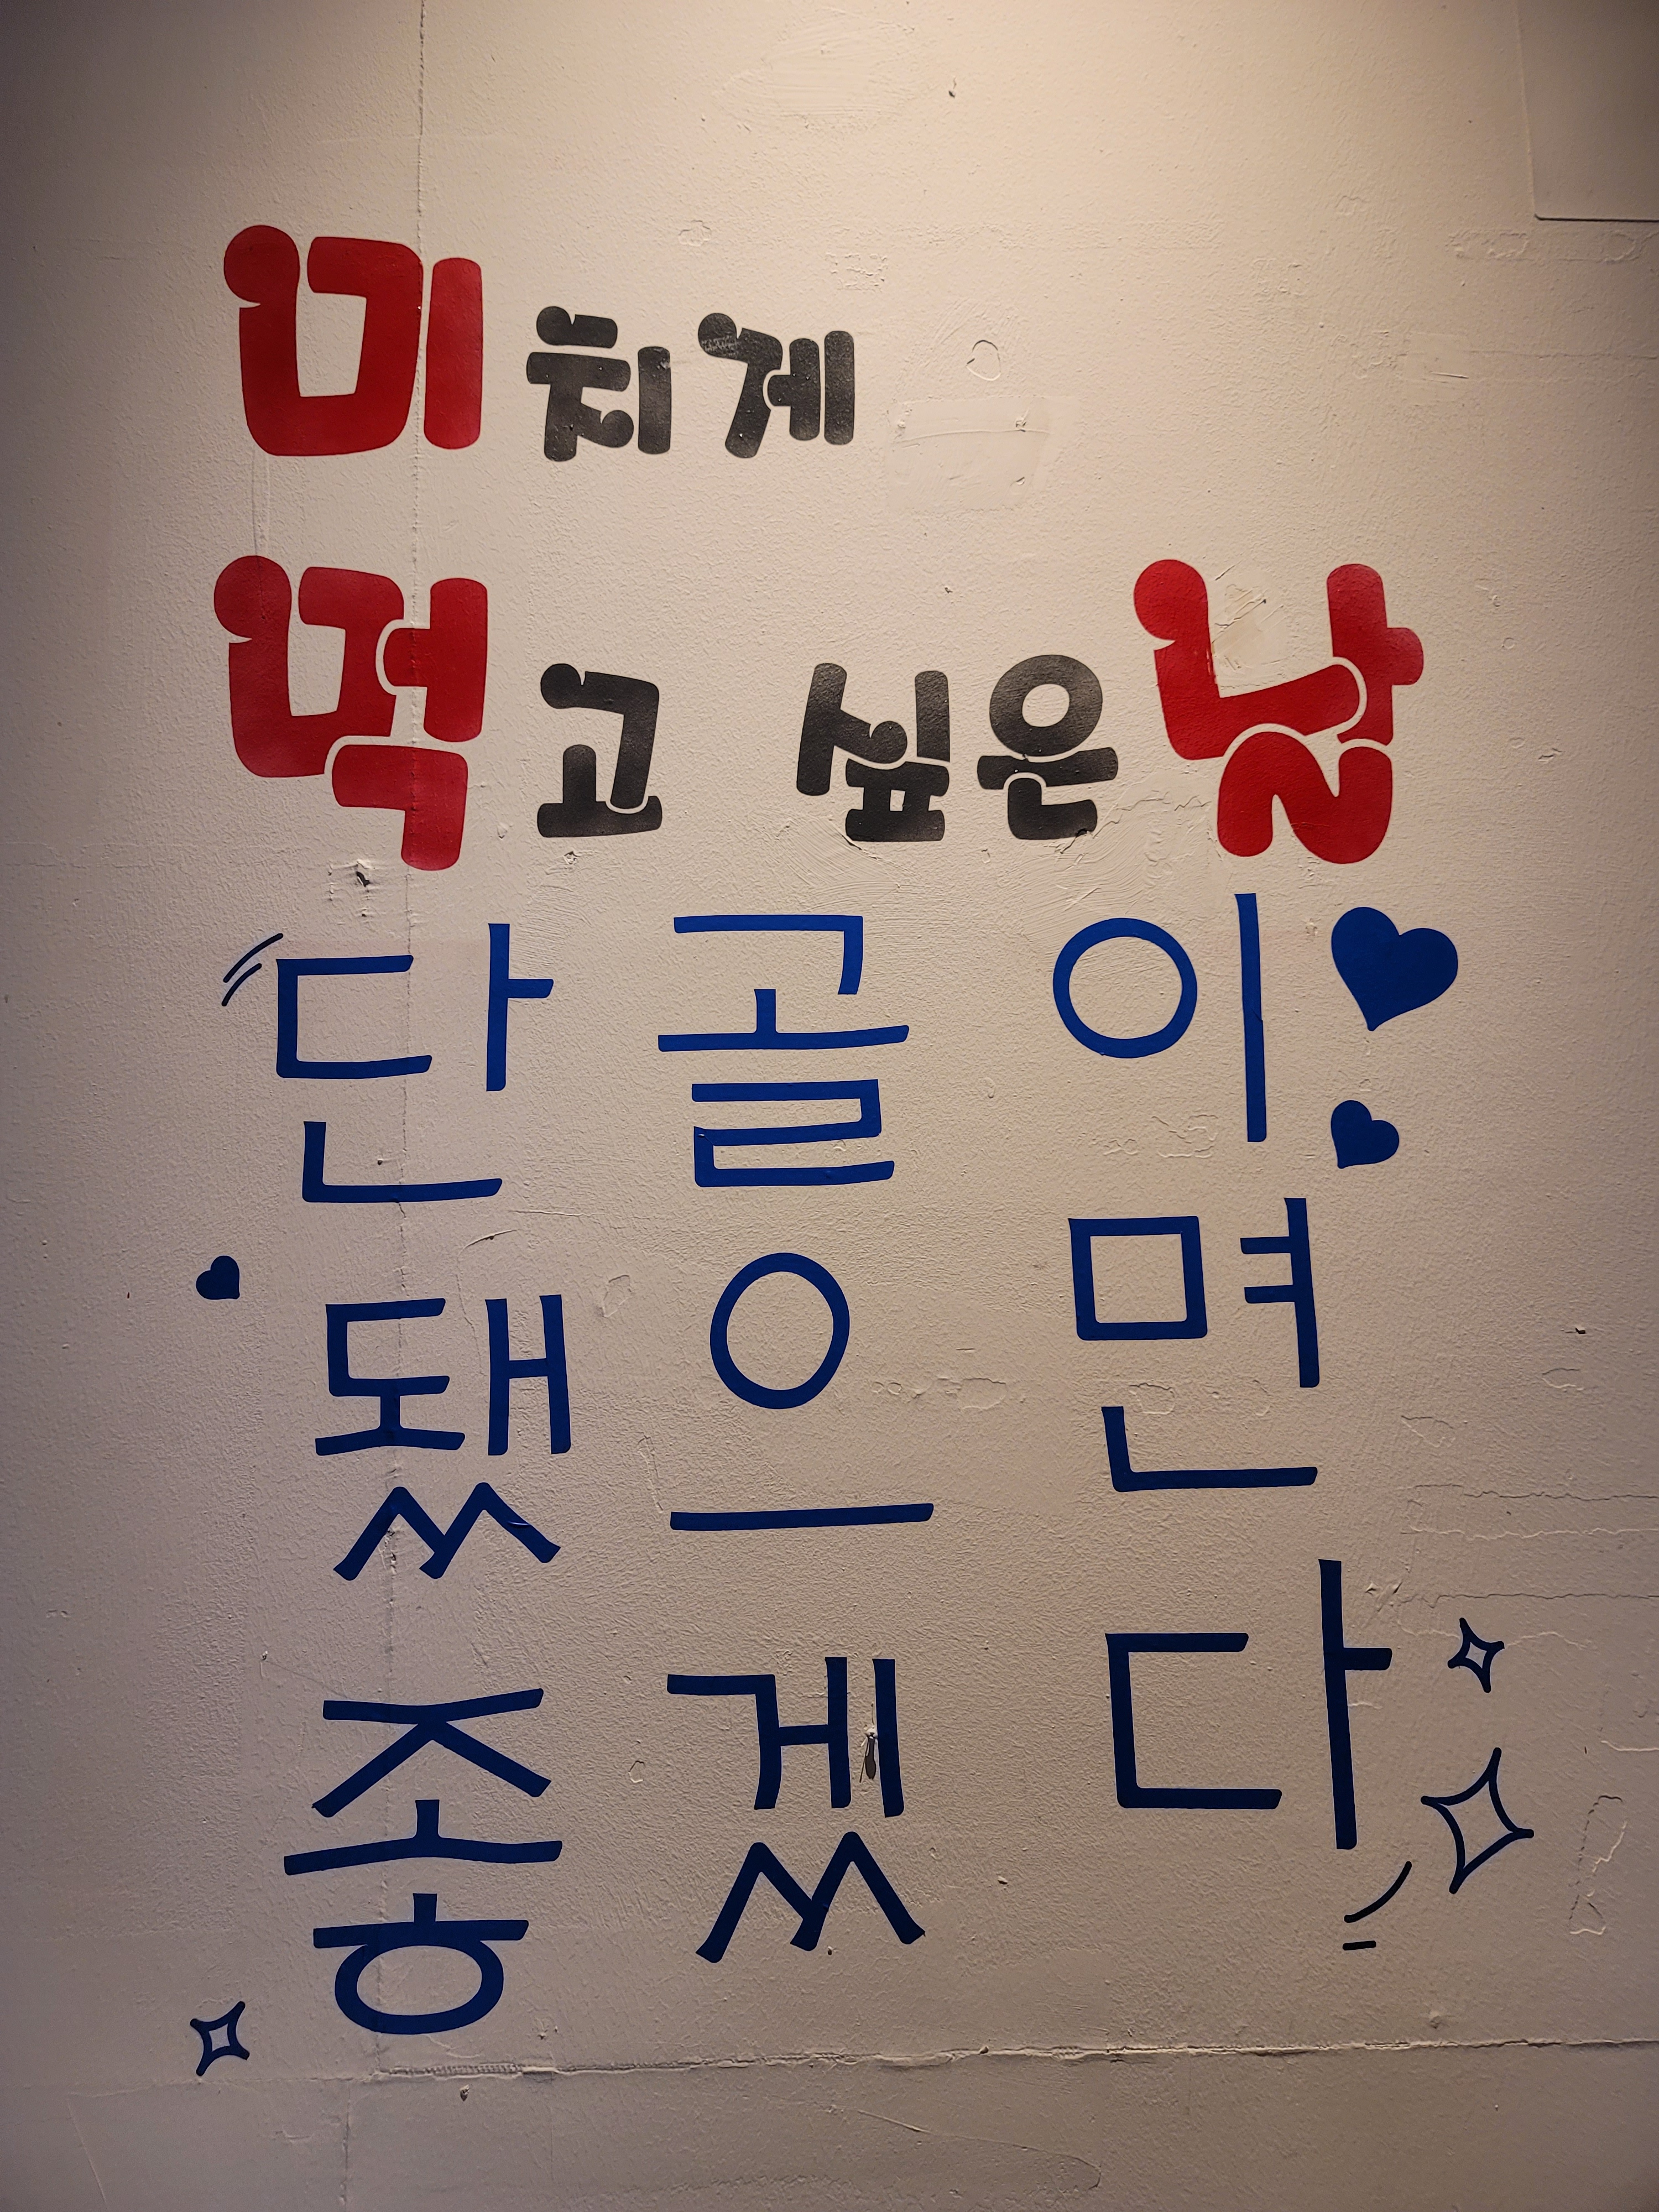 미치게
먹고 싶은날
단골이
됐으면
좋겠다